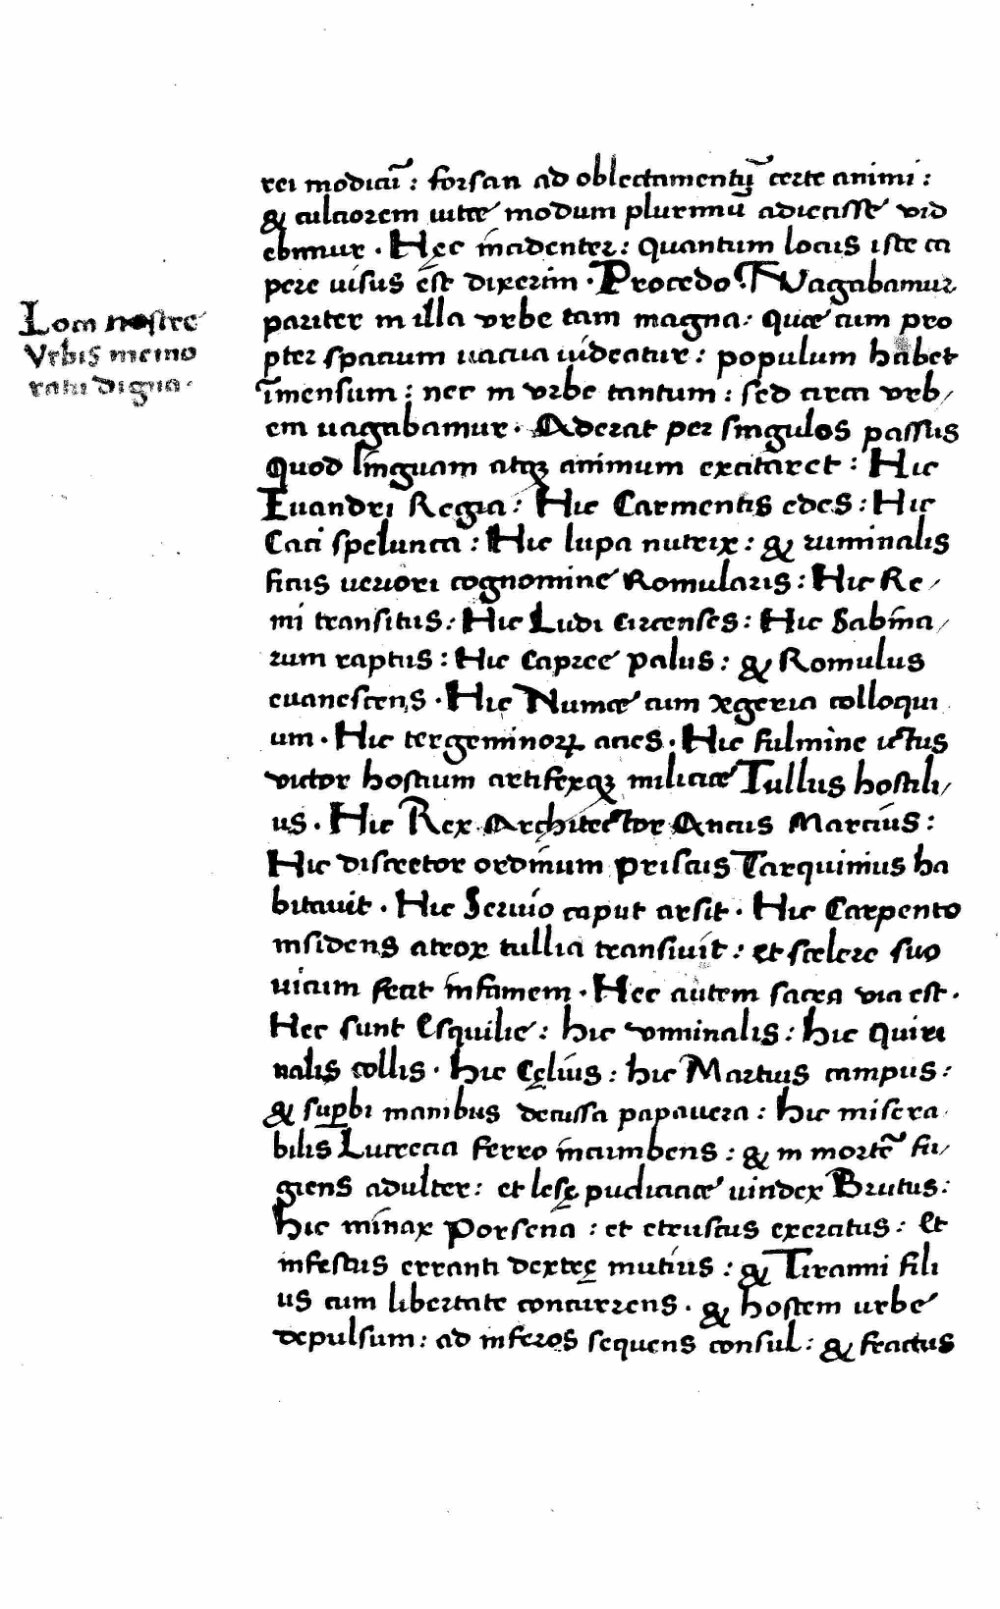 rei modicū : forsan ad oblectamentū certe animi :
& cultiorem uitæ modum plurimū adiecisse vid
ebimur . Hec incidenter : Quantum locus iste ca
pere uisus est dixerim . Procedo . Vagabamur
pariter in illa vrbe tam magna : Quæ cum pro
pter spatium uacua uideatur : populum habet
īmensum : nec in vrbe tantum : sed circa vrb/
em uagabamur . Aderat per singulos passus
Quod linguam atqꝫ animum excitaret : Hic
Euandri Regia : Hic Carmentis edes : Hic
Caci spelunca : Hic lupa nutrix : & ruminalis
ficus veriori cognomine Romularis : Hic Re/
mi transitus : Hic Ludi Circenses : Hic Sabina/
rum raptus : Hic Capree palus : & Romulus
euanescens . Hic Numæ cum egeria colloqui
um . Hic tergeminoꝝ acies . Hic fulmine ictus
victor hostium artifexqꝫ miliciæ Tullus hostili/
us . Hic Rex Architector Ancus Marcius :
Hic discretor ordinum priscus Tarquinius ha
bitavit . Hic Seruio caput arsit . Hic Carpento
insidens atrox tullia transiuit : et scelere suo
uicum fecit infamem . Hec autem sacra via est .
Hec sunt Esquilie : hic viminalis : hic quiri
nalis collis . hic Cęlius : hic Martius campus :
& suꝑbi manibus decussa papauera : hic misera
bilis Lucrecia ferro incumbens : & in mortē fu/
giens adulter : et lesę pudiciciæ uindex Brutus :
hic minax Porsena : et etruscus exercitus : et
infestus erranti dextrę mutius : & Tiranni fili
us cum libertate concurrens . & hostem urbe
depulsum : ad inferos sequens consul : & fractus
Loca nostre
Vrbis memo
ratu digna .